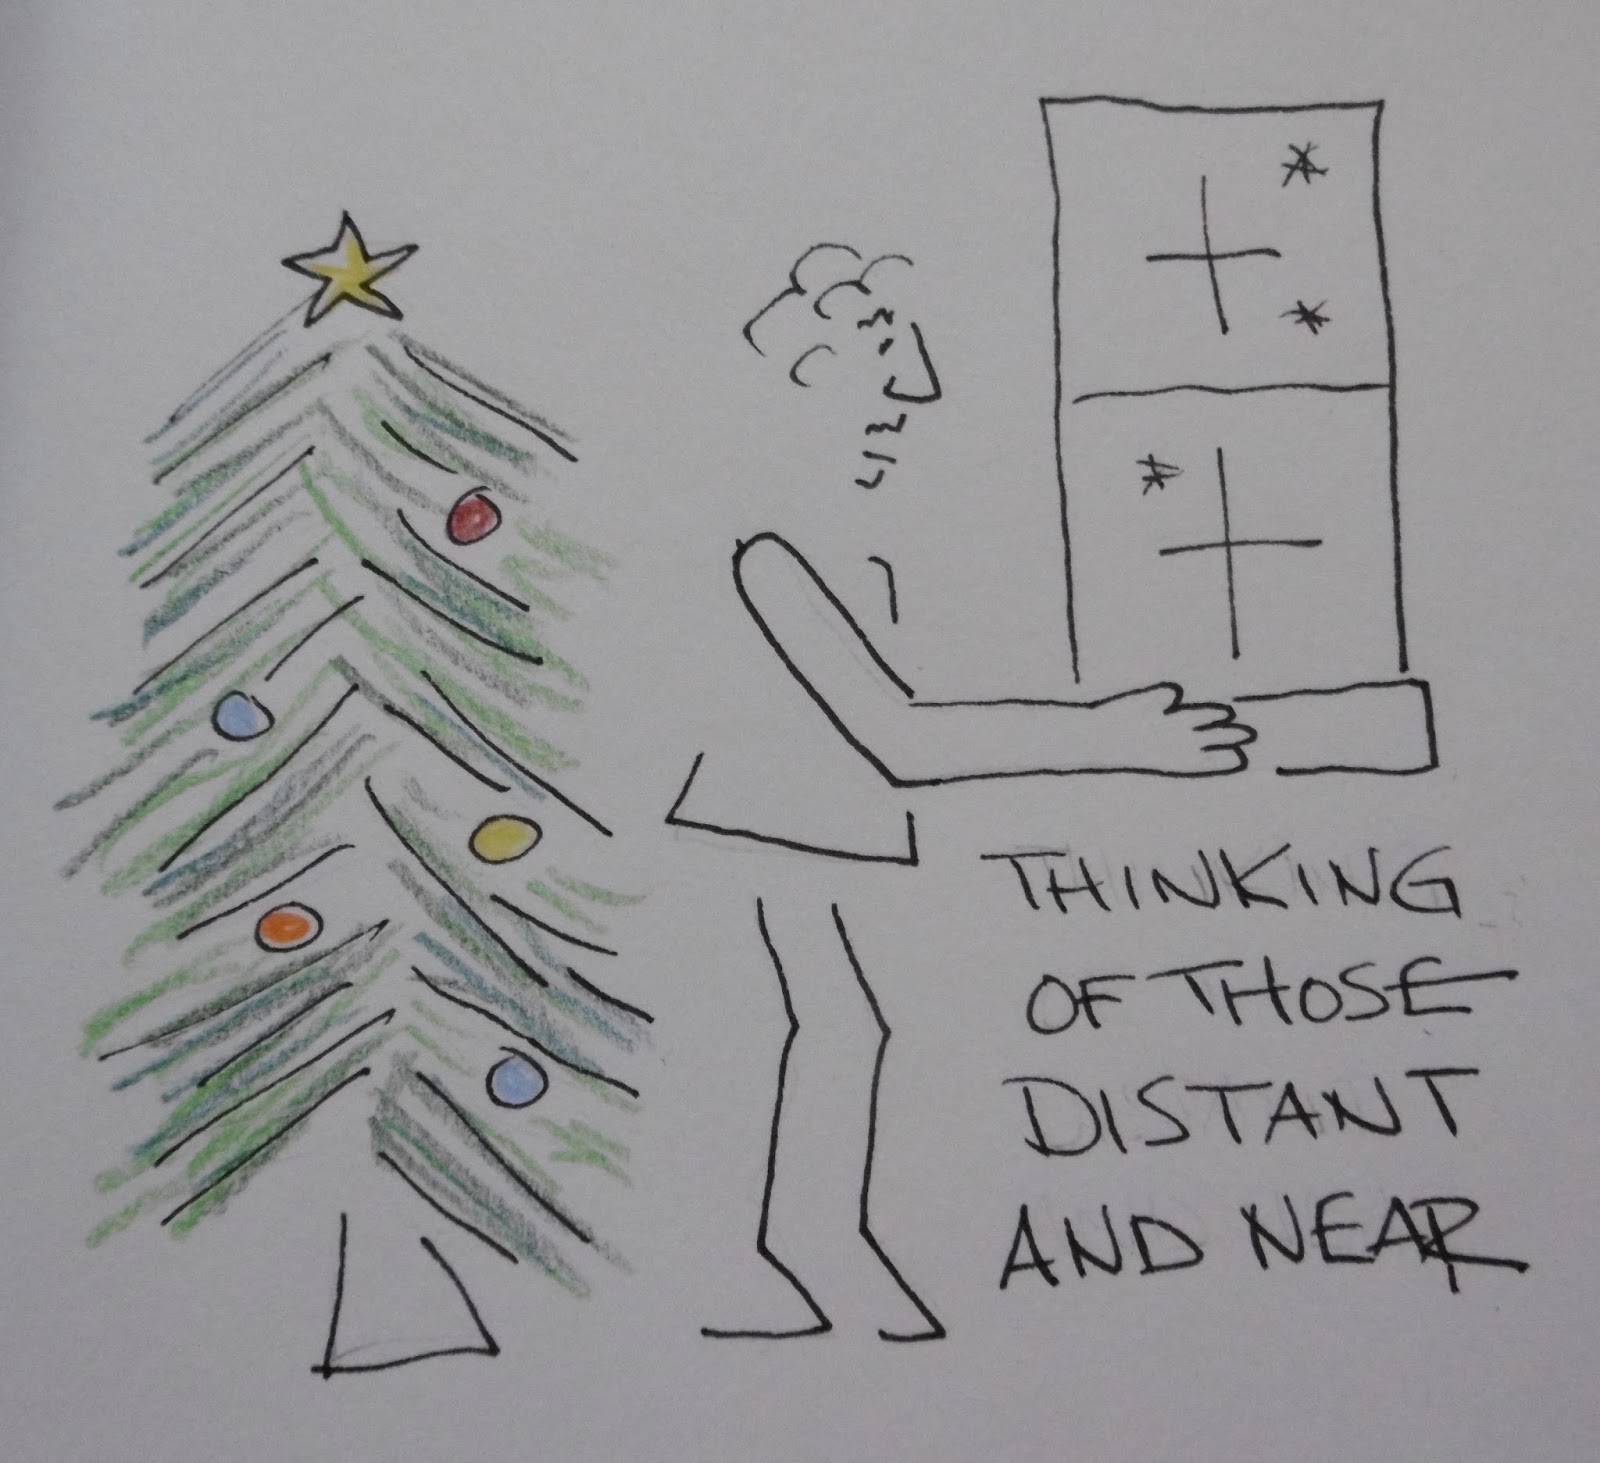 THINKING
OF THOSE
DISTANT
AND NEAR